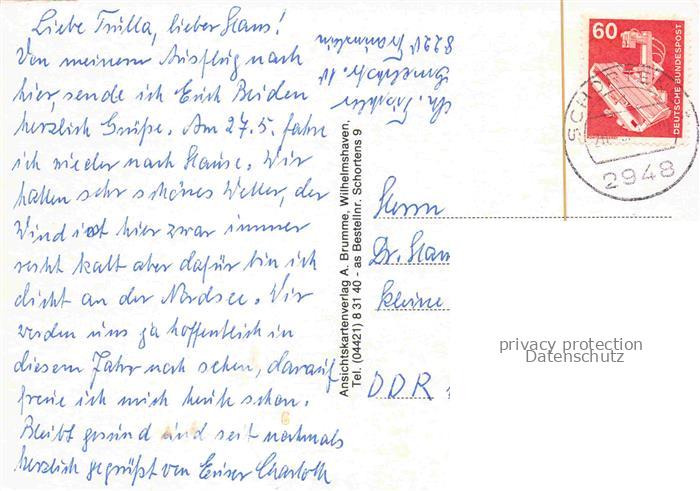 Liebe Trulla, lieber Hans!
Von meinem Ausflug nach
hier, sende ich Euch Beiden
herzlich Grüße. Am 27.5. fahre
ich wieder nach Hause. Wir
hatten sehr schönes Wetter, der
Wind ist hier zwar immer
recht kalt aber dafür bin ich
dicht an der Nordsee. Wir
werden uns ja hoffentlich in
diesem Jahr noch sehen, darauf
freue ich mich heute schon.
Bleibt gesund und seit nochmals
herzlich gegrüßt von Euer Charlott
8221
Ansichtskartenverlag A. Brumme, Wilhelmshaven,
Tel. (04421) 8 31 40 - as Bestellnr. Schortens 9
60
DEUTSCHE BUNDESPOST
2948
Herrn
Dr. Han
Kleine
DDR
privacy protection
Datenschutz